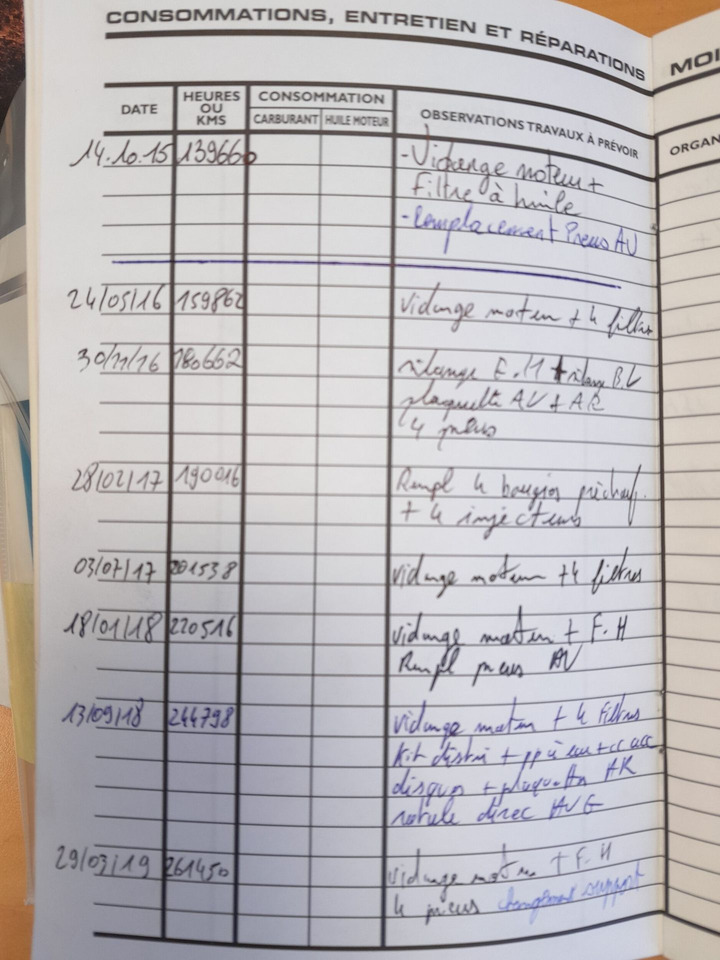 CONSOMMATIONS, ENTRETIEN ET RÉPARATIONS
MOI
DATE HEURES OU KMS CONSOMMATION CARBURANT HUILE MOTEUR OBSERVATIONS TRAVAUX À PRÉVOIR
ORGAN
14.10.15 139660 -Vidange moteur +
Filtre à huile
-Remplacement Pneus AV
24/05/16 159862 vidange moteur + 4 filtres
30/11/16 180662 vidange F.H + vidange B.V
plaquette AV + AR
4 pneus
28/02/17 190016 Rempl 4 bougies préchauf.
+ 4 injecteurs
03/07/17 201538 vidange moteur +4 filtres
18/01/18 220516 vidange moteur + F.H
Rempl pneus AV
13/09/18 244798 vidange moteur + 4 filtres
Kit distri + pp à eau + cc acc
disques + plaquettes AR
rotule direc AVG
29/03/19 261450 vidange moteur + F.H
4 pneus changement support